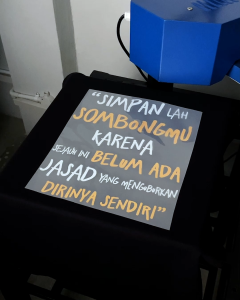 "SIMPAN LAH
SOMBONGMU
KARENA
SEJAUH INI BELUM ADA
JASAD YANG MENGUBURKAN
DIRINYA SENDIRI"